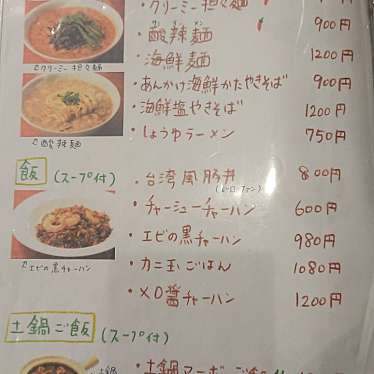 ・クリーミー担々麺
・酸辣麺 900円
・海鮮麺 1200円
♂クリーミー担々麺
・あんかけ海鮮かたやきそば 900円
・海鮮塩やきそば 1200円
・しょうゆラーメン 750円
♂酸辣麺
飯 (スープ付)
・台湾風豚丼 800円
(ルーローファン)
・チャーシューチャーハン 600円
・エビの黒チャーハン 980円
♂エビの黒チャーハン
・カニ玉ごはん 1080円
・XO醤チャーハン 1200円
土鍋ご飯 (スープ付)
土鍋
・土鍋マーボーご飯